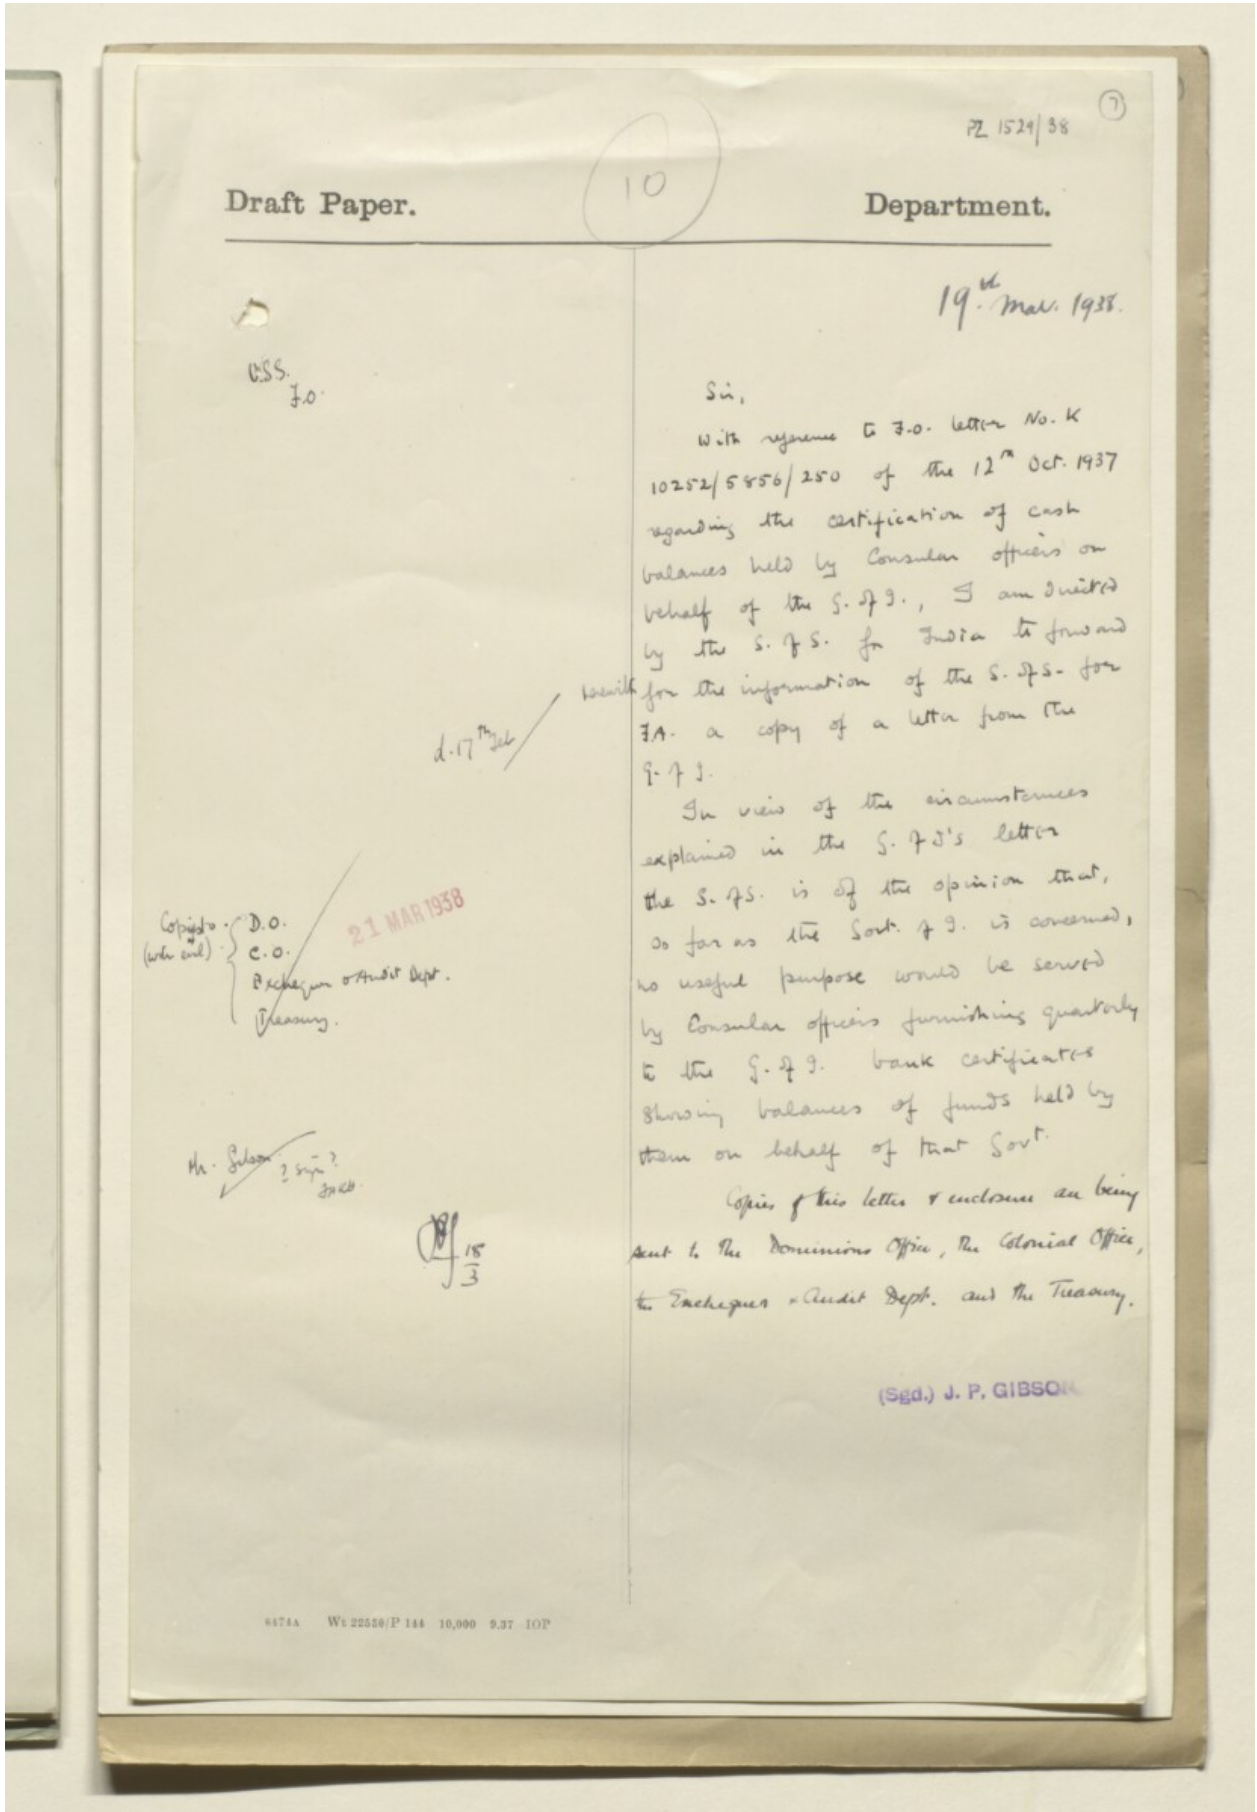 7
PZ 1529/38
10
Draft Paper.
Department.
19th Mar. 1938.
U.S.S.
F.O.
Sir,
With reference to F.O. letter No. K
10252/5856/250 of the 12th Oct. 1937
regarding the certification of cash
balances held by Consular officers on
behalf of the G. of I., I am directed
by the S. of S. for India to forward
herewith for the information of the S. of S. for
F.A. a copy of a letter from the
d. 17th Feb
G. of I.
In view of the circumstances
explained in the G. of I's letter
the S. of S. is of the opinion that,
as far as the Govt. of I. is concerned,
no useful purpose would be served
by Consular officers furnishing quarterly
to the G. of I. bank certificates
showing balances of funds held by
them on behalf of that Govt.
Copies of this letter & enclosure are being
sent to the Dominions Office, the Colonial Office,
the Exchequer & Audit Dept. and the Treasury.
Copies to
(with encl)
D.O.
C.O.
Exchequer & Audit Dept.
Treasury.
21 MAR 1938
Mr. Gibson
? Sign ?
18/3
(Sgd.) J. P. GIBSON
6474A Wt 22530/P 144 10,000 9.37 IOP